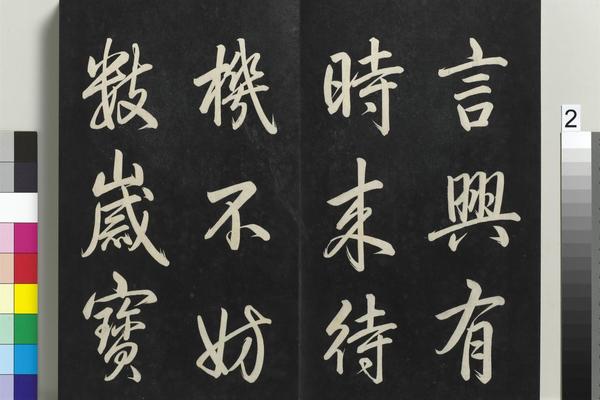 言興有
時来待
機不妨
數歳寶
2